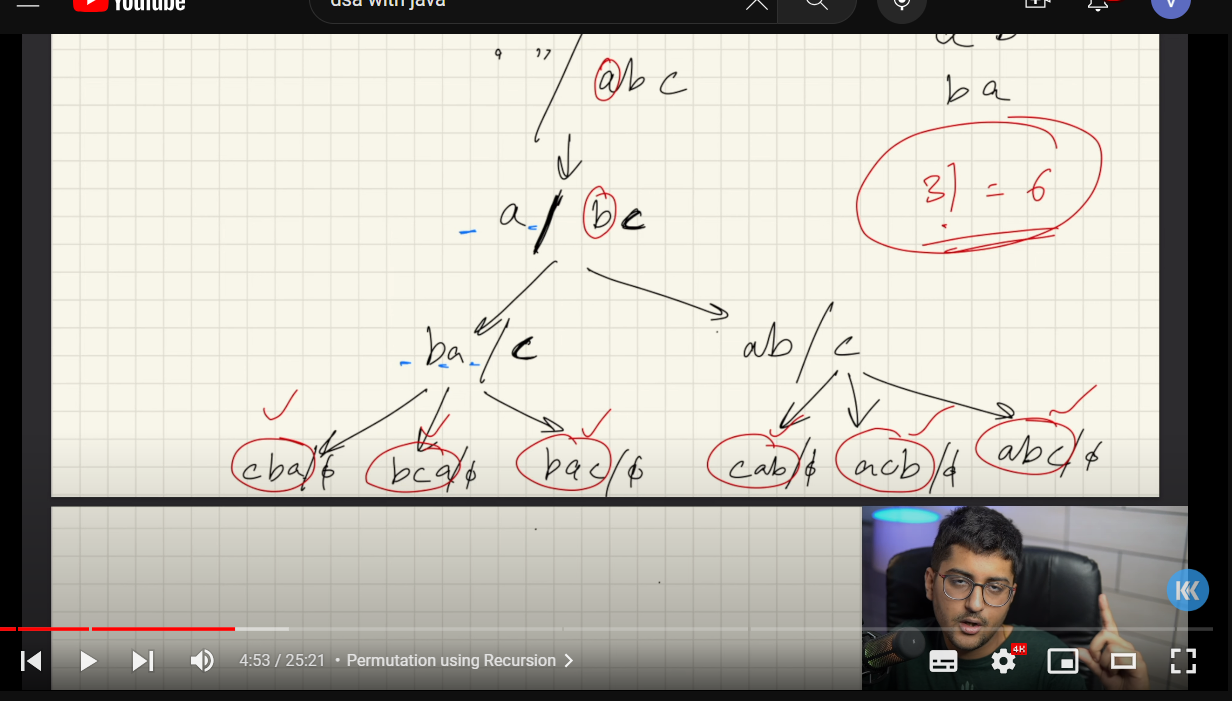 YouTube
dsa with java
V
" " / abc
a b
b a
a / bc
3! = 6
ba / c
ab / c
cba/ϕ
bca/ϕ
bac/ϕ
cab/ϕ
acb/ϕ
abc/ϕ
4:53 / 25:21 • Permutation using Recursion
4K